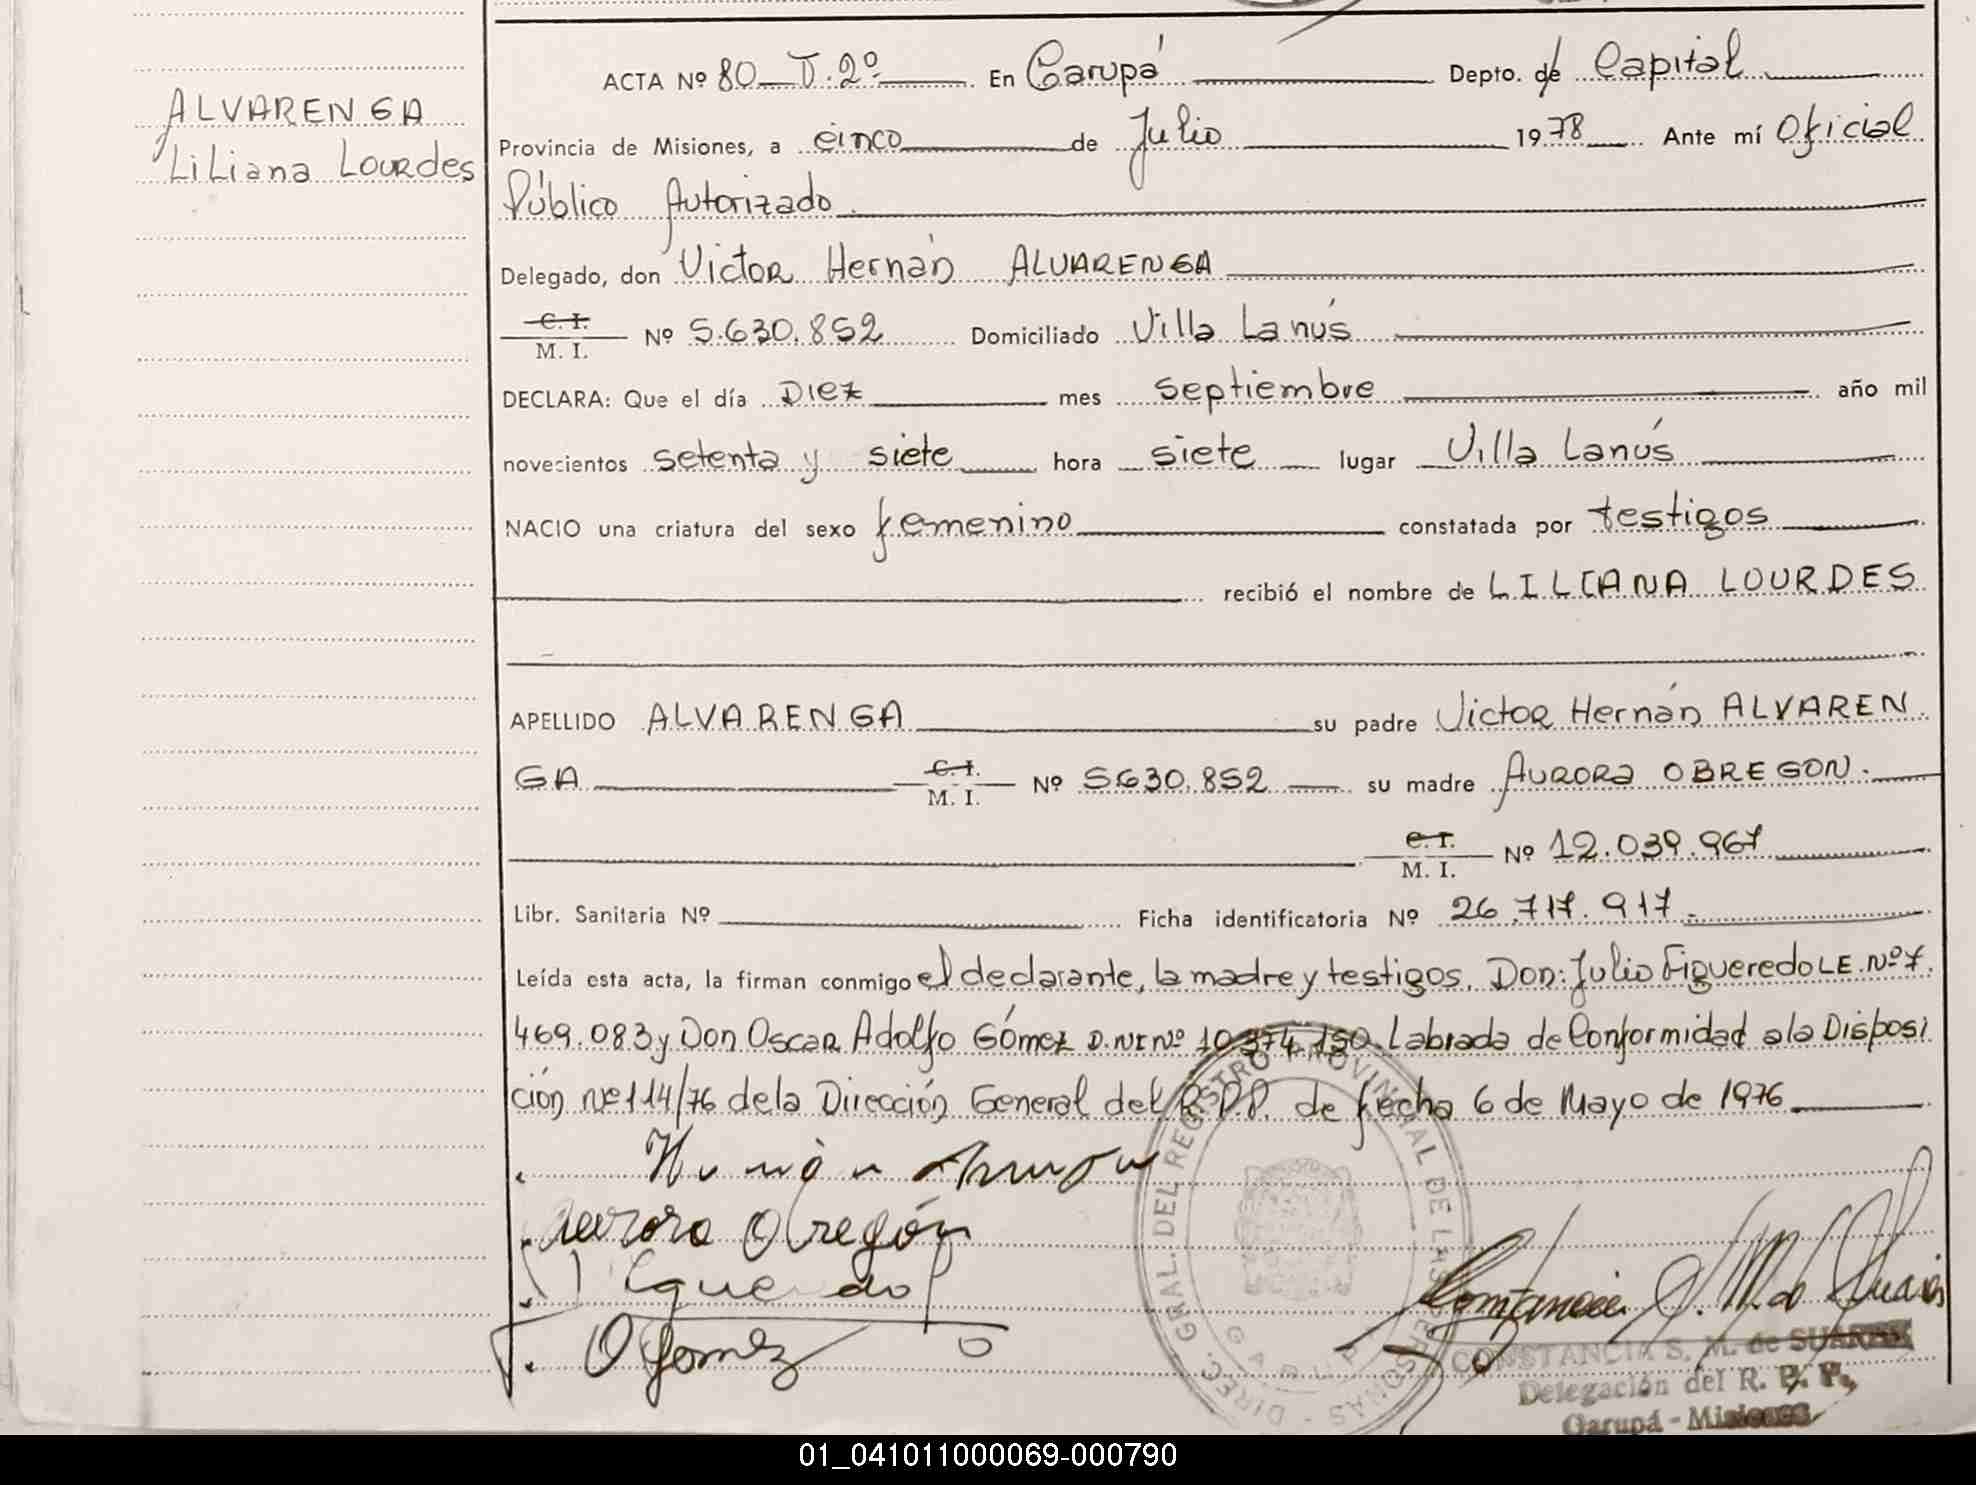 ALVARENGA
Liliana Lourdes
ACTA Nº 80 T. 2º En Garupá Depto. de Capital
Provincia de Misiones, a cinco de Julio 1978 Ante mí Oficial
Público Autorizado.
Delegado, don Victor Hernán ALVARENGA
C. I. / M. I. Nº 5.630.852 Domiciliado Villa Lanús
DECLARA: Que el día Diez mes septiembre año mil
novecientos setenta y siete hora siete lugar Villa Lanús
NACIO una criatura del sexo femenino constatada por testigos
recibió el nombre de LILIANA LOURDES
APELLIDO ALVARENGA su padre Victor Hernán ALVAREN
GA C. I. / M. I. Nº 5.630.852 su madre AURORA OBREGON.
C. I. / M. I. Nº 12.039.967
Libr. Sanitaria Nº Ficha identificatoria Nº 26.717.917.
Leída esta acta, la firman conmigo el declarante, la madre y testigos. Don: Julio Figueredo LE. Nº 7.
469.083 y Don Oscar Adolfo Gómez D.NI Nº 10.374.150. Labrada de Conformidad a la Disposi
ción Nº 114/76 de la Dirección General del R.P.P. de fecha 6 de Mayo de 1976
Aurora Obregón
Figueredo
O Gomez
DIREC. GRAL. DEL REGISTRO PROVINCIAL DE LAS PERSONAS
GARUPA
CONSTANCIA S. M. de SUAREZ
Delegación del R. P. P.
Garupá - Misiones
01_041011000069-000790